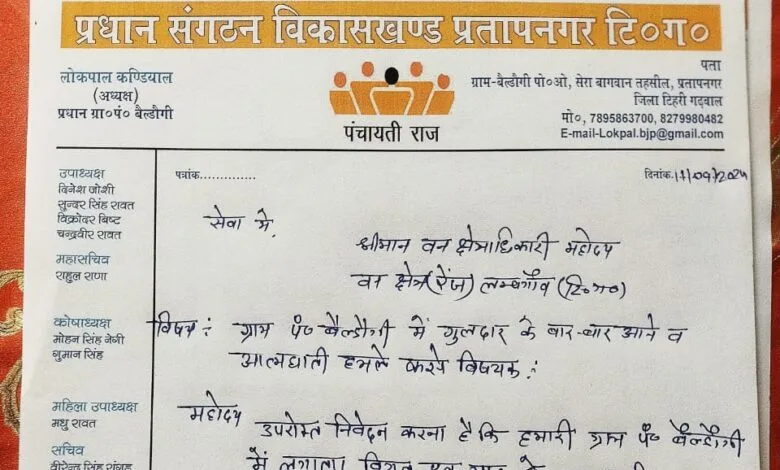 प्रधान संगठन विकासखण्ड प्रतापनगर टि०ग०
लोकपाल कण्डियाल
(अध्यक्ष)
प्रधान ग्रा०पं० बैल्डोगी
पंचायती राज
पता
ग्राम-बैल्डौगी पो०ओ, सेरा बागवान तहसील, प्रतापनगर
जिला टिहरी गढ़वाल
मो०, 7895863700, 8279980482
E-mail-Lokpal.bjp@gmail.com
उपाध्यक्ष
विनेश जोशी
सुन्दर सिंह रावत
विक्रोदर बिष्ट
चन्द्रवीर रावत
महासचिव
राहुल राणा
कोषाध्यक्ष
मोहन सिंह नेगी
गुमान सिंह
महिला उपाध्यक्ष
मधु रावत
सचिव
वीरेन्द्र सिंह रांगड़
पत्रांक..............
दिनांक.11/09/2024
सेवा मे,
श्रीमान वन क्षेत्राधिकारी महोदय
वन क्षेत्र(रेंज) लम्बगाँव (टि०ग०)
विषय: ग्राम पं० बैल्डोगी में गुलदार के बार-बार आने व
आत्मघाती हमले करने विषयक:
महोदय
उपरोक्त निवेदन करना है कि हमारी ग्राम पं० बैल्डोगी
में लगातार विगत एक